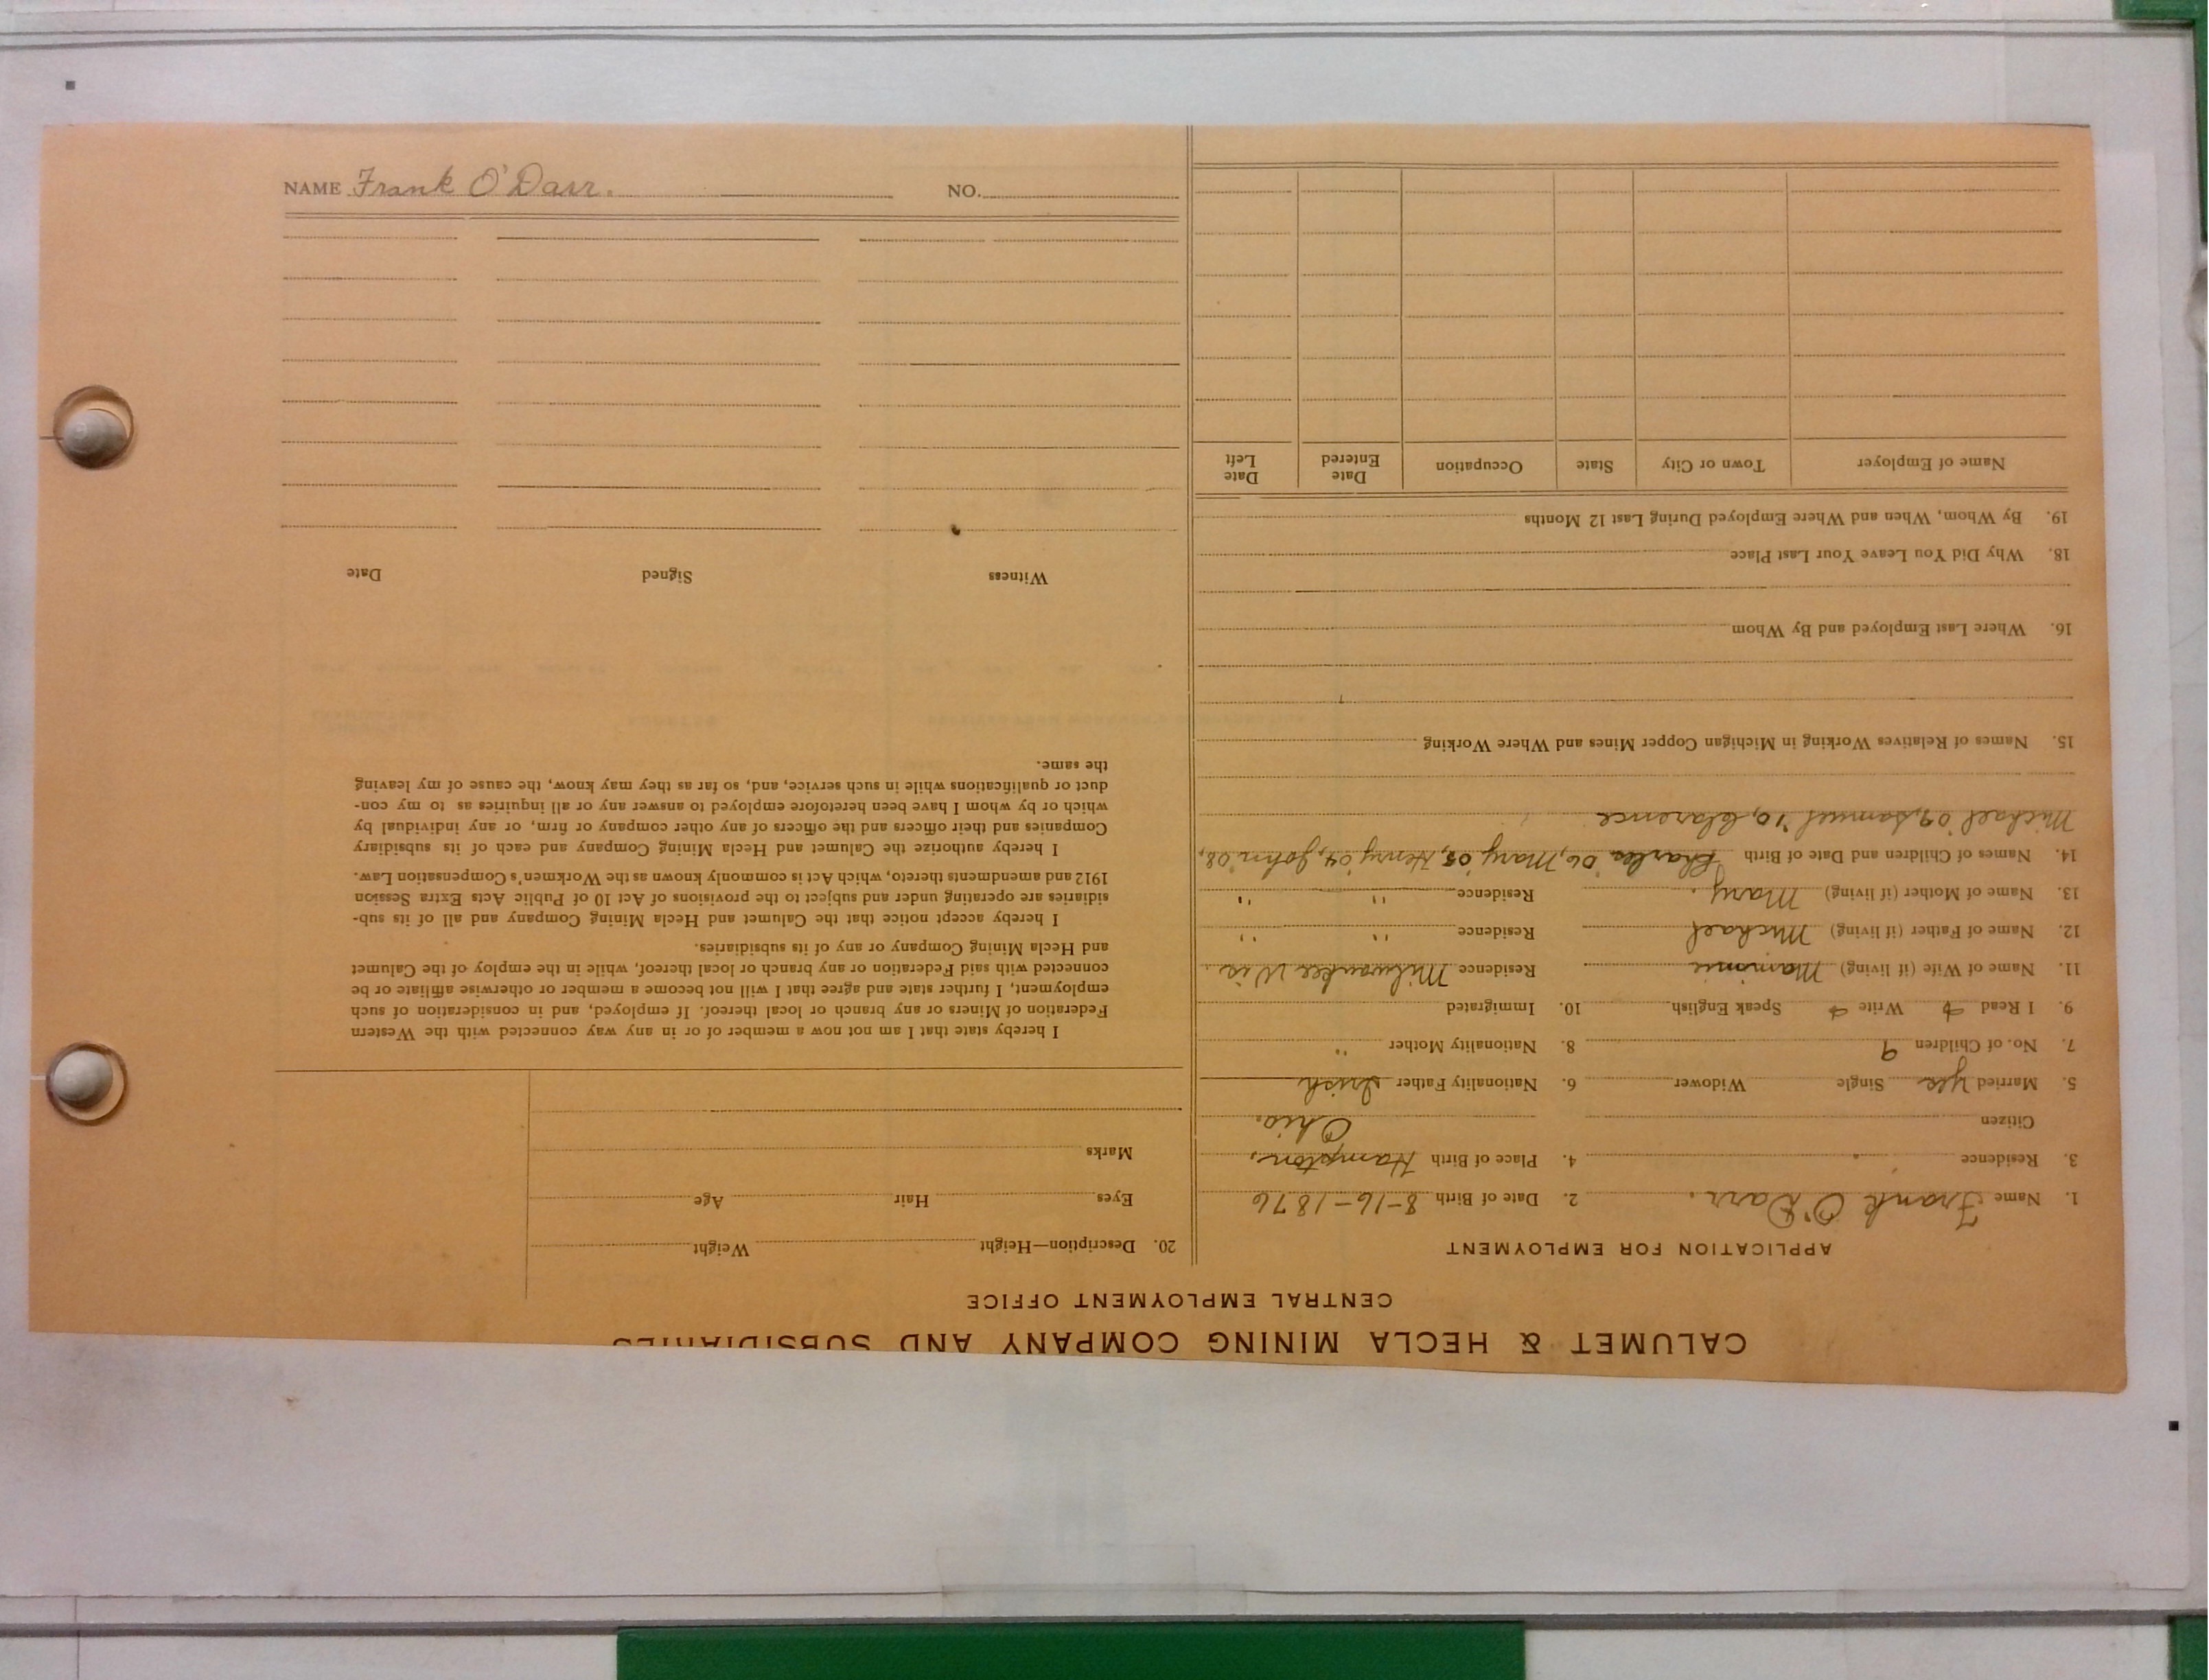 NAME Frank O'Darr. NO.
CALUMET & HECLA MINING COMPANY AND SUBSIDIARIES
CENTRAL EMPLOYMENT OFFICE
APPLICATION FOR EMPLOYMENT
1. Name Frank O'Darr. 2. Date of Birth 8-16-1876
3. Residence 4. Place of Birth Hampton,
Citizen Ohio.
5. Married Yes Single Widower 6. Nationality Father Irish
7. No. of Children 9 8. Nationality Mother "
9. I Read Write Speak English 10. Immigrated
11. Name of Wife (if living) Mammie Residence Milwaukee Wis.
12. Name of Father (if living) Michael Residence " "
13. Name of Mother (if living) Mary. Residence " "
14. Names of Children and Date of Birth Charles '06, Mary '05, Henry '04, John '08,
Michael '09, Samuel '10, Clarence
15. Names of Relatives Working in Michigan Copper Mines and Where Working
16. Where Last Employed and By Whom
18. Why Did You Leave Your Last Place
19. By Whom, When and Where Employed During Last 12 Months
Name of Employer Town or City State Occupation Date Entered Date Left
20. Description—Height Weight
Eyes Hair Age
Marks
I hereby state that I am not now a member of or in any way connected with the Western
Federation of Miners or any branch or local thereof. If employed, and in consideration of such
employment, I further state and agree that I will not become a member or otherwise affiliate or be
connected with said Federation or any branch or local thereof, while in the employ of the Calumet
and Hecla Mining Company or any of its subsidiaries.
I hereby accept notice that the Calumet and Hecla Mining Company and all of its sub-
sidiaries are operating under and subject to the provisions of Act 10 of Public Acts Extra Session
1912 and amendments thereto, which Act is commonly known as the Workmen's Compensation Law.
I hereby authorize the Calumet and Hecla Mining Company and each of its subsidiary
Companies and their officers and the officers of any other company or firm, or any individual by
which or by whom I have been heretofore employed to answer any or all inquiries as to my con-
duct or qualifications while in such service, and, so far as they may know, the cause of my leaving
the same.
Witness Signed Date